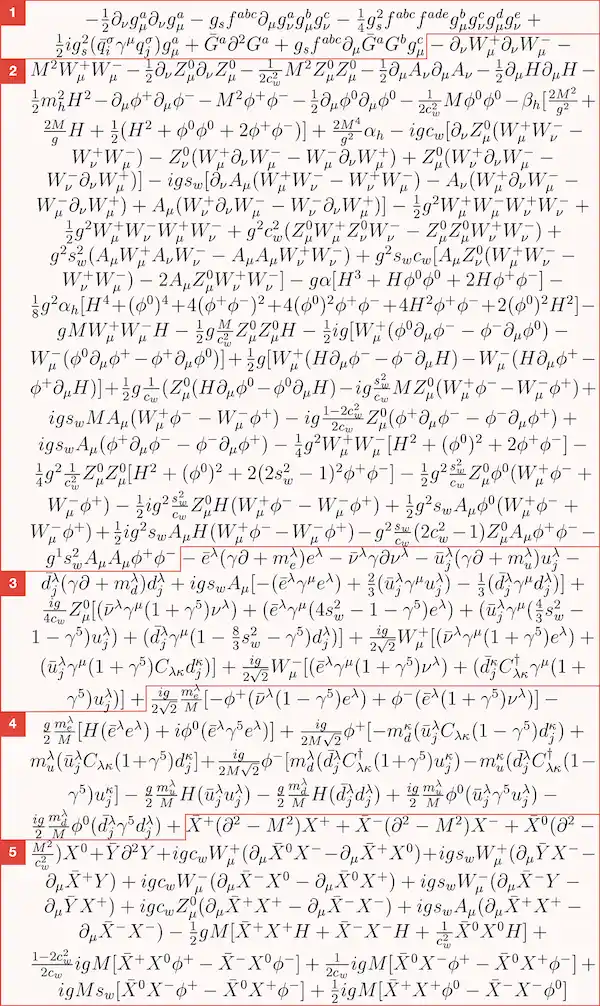 1
-\frac{1}{2}\partial_\nu g^a_\mu \partial_\nu g^a_\mu - g_s f^{abc} \partial_\mu g^a_\nu g^b_\mu g^c_\nu - \frac{1}{4} g^2_s f^{abc} f^{ade} g^b_\mu g^c_\nu g^d_\mu g^e_\nu +
\frac{1}{2} i g^2_s (\bar{q}^\sigma_i \gamma^\mu q^\sigma_j) g^a_\mu + \bar{G}^a \partial^2 G^a + g_s f^{abc} \partial_\mu \bar{G}^a G^b g^c_\mu - \partial_\nu W^+_\mu \partial_\nu W^-_\mu -
2
M^2 W^+_\mu W^-_\mu - \frac{1}{2} \partial_\nu Z^0_\mu \partial_\nu Z^0_\mu - \frac{1}{2c^2_w} M^2 Z^0_\mu Z^0_\mu - \frac{1}{2} \partial_\mu A_\nu \partial_\mu A_\nu - \frac{1}{2} \partial_\mu H \partial_\mu H -
\frac{1}{2} m^2_h H^2 - \partial_\mu \phi^+ \partial_\mu \phi^- - M^2 \phi^+ \phi^- - \frac{1}{2} \partial_\mu \phi^0 \partial_\mu \phi^0 - \frac{1}{2c^2_w} M \phi^0 \phi^0 - \beta_h [\frac{2M^2}{g^2} +
\frac{2M}{g} H + \frac{1}{2} (H^2 + \phi^0 \phi^0 + 2\phi^+ \phi^-)] + \frac{2M^4}{g^2} \alpha_h - igc_w [\partial_\nu Z^0_\mu (W^+_\mu W^-_\nu -
W^+_\nu W^-_\mu) - Z^0_\nu (W^+_\mu \partial_\nu W^-_\mu - W^-_\mu \partial_\nu W^+_\mu) + Z^0_\mu (W^+_\nu \partial_\nu W^-_\mu -
W^-_\nu \partial_\nu W^+_\mu)] - igs_w [\partial_\nu A_\mu (W^+_\mu W^-_\nu - W^+_\nu W^-_\mu) - A_\nu (W^+_\mu \partial_\nu W^-_\mu -
W^-_\mu \partial_\nu W^+_\mu) + A_\mu (W^+_\nu \partial_\nu W^-_\mu - W^-_\nu \partial_\nu W^+_\mu)] - \frac{1}{2} g^2 W^+_\mu W^-_\mu W^+_\nu W^-_\nu +
\frac{1}{2} g^2 W^+_\mu W^-_\nu W^+_\mu W^-_\nu + g^2 c^2_w (Z^0_\mu W^+_\mu Z^0_\nu W^-_\nu - Z^0_\mu Z^0_\mu W^+_\nu W^-_\nu) +
g^2 s^2_w (A_\mu W^+_\mu A_\nu W^-_\nu - A_\mu A_\mu W^+_\nu W^-_\nu) + g^2 s_w c_w [A_\mu Z^0_\nu (W^+_\mu W^-_\nu -
W^+_\nu W^-_\mu) - 2A_\mu Z^0_\mu W^+_\nu W^-_\nu] - g\alpha [H^3 + H\phi^0 \phi^0 + 2H\phi^+ \phi^-] -
\frac{1}{8} g^2 \alpha_h [H^4 + (\phi^0)^4 + 4(\phi^+ \phi^-)^2 + 4(\phi^0)^2 \phi^+ \phi^- + 4H^2 \phi^+ \phi^- + 2(\phi^0)^2 H^2] -
gMW^+_\mu W^-_\mu H - \frac{1}{2} g \frac{M}{c^2_w} Z^0_\mu Z^0_\mu H - \frac{1}{2} ig [W^+_\mu (\phi^0 \partial_\mu \phi^- - \phi^- \partial_\mu \phi^0) -
W^-_\mu (\phi^0 \partial_\mu \phi^+ - \phi^+ \partial_\mu \phi^0)] + \frac{1}{2} g [W^+_\mu (H \partial_\mu \phi^- - \phi^- \partial_\mu H) - W^-_\mu (H \partial_\mu \phi^+ -
\phi^+ \partial_\mu H)] + \frac{1}{2} g \frac{1}{c_w} (Z^0_\mu (H \partial_\mu \phi^0 - \phi^0 \partial_\mu H) - ig \frac{s^2_w}{c_w} M Z^0_\mu (W^+_\mu \phi^- - W^-_\mu \phi^+) +
igs_w M A_\mu (W^+_\mu \phi^- - W^-_\mu \phi^+) - ig \frac{1-2c^2_w}{2c_w} Z^0_\mu (\phi^+ \partial_\mu \phi^- - \phi^- \partial_\mu \phi^+) +
igs_w A_\mu (\phi^+ \partial_\mu \phi^- - \phi^- \partial_\mu \phi^+) - \frac{1}{4} g^2 W^+_\mu W^-_\mu [H^2 + (\phi^0)^2 + 2\phi^+ \phi^-] -
\frac{1}{4} g^2 \frac{1}{c^2_w} Z^0_\mu Z^0_\mu [H^2 + (\phi^0)^2 + 2(2s^2_w - 1)^2 \phi^+ \phi^-] - \frac{1}{2} g^2 \frac{s^2_w}{c_w} Z^0_\mu \phi^0 (W^+_\mu \phi^- +
W^-_\mu \phi^+) - \frac{1}{2} ig^2 \frac{s^2_w}{c_w} Z^0_\mu H (W^+_\mu \phi^- - W^-_\mu \phi^+) + \frac{1}{2} g^2 s_w A_\mu \phi^0 (W^+_\mu \phi^- +
W^-_\mu \phi^+) + \frac{1}{2} ig^2 s_w A_\mu H (W^+_\mu \phi^- - W^-_\mu \phi^+) - g^2 \frac{s_w}{c_w} (2c^2_w - 1) Z^0_\mu A_\mu \phi^+ \phi^- -
g^1 s^2_w A_\mu A_\mu \phi^+ \phi^- - \bar{e}^\lambda (\gamma\partial + m^\lambda_e) e^\lambda - \bar{\nu}^\lambda \gamma\partial \nu^\lambda - \bar{u}^\lambda_j (\gamma\partial + m^\lambda_u) u^\lambda_j -
3
\bar{d}^\lambda_j (\gamma\partial + m^\lambda_d) d^\lambda_j + igs_w A_\mu [-(\bar{e}^\lambda \gamma^\mu e^\lambda) + \frac{2}{3} (\bar{u}^\lambda_j \gamma^\mu u^\lambda_j) - \frac{1}{3} (\bar{d}^\lambda_j \gamma^\mu d^\lambda_j)] +
\frac{ig}{4c_w} Z^0_\mu [(\bar{\nu}^\lambda \gamma^\mu (1 + \gamma^5) \nu^\lambda) + (\bar{e}^\lambda \gamma^\mu (4s^2_w - 1 - \gamma^5) e^\lambda) + (\bar{u}^\lambda_j \gamma^\mu (\frac{4}{3} s^2_w -
1 - \gamma^5) u^\lambda_j) + (\bar{d}^\lambda_j \gamma^\mu (1 - \frac{8}{3} s^2_w - \gamma^5) d^\lambda_j)] + \frac{ig}{2\sqrt{2}} W^+_\mu [(\bar{\nu}^\lambda \gamma^\mu (1 + \gamma^5) e^\lambda) +
(\bar{u}^\lambda_j \gamma^\mu (1 + \gamma^5) C_{\lambda\kappa} d^\kappa_j)] + \frac{ig}{2\sqrt{2}} W^-_\mu [(\bar{e}^\lambda \gamma^\mu (1 + \gamma^5) \nu^\lambda) + (\bar{d}^\kappa_j C^\dagger_{\lambda\kappa} \gamma^\mu (1 +
\gamma^5) u^\lambda_j)] + \frac{ig}{2\sqrt{2}} \frac{m^\lambda_e}{M} [-\phi^+ (\bar{\nu}^\lambda (1 - \gamma^5) e^\lambda) + \phi^- (\bar{e}^\lambda (1 + \gamma^5) \nu^\lambda)] -
4
\frac{g}{2} \frac{m^\lambda_e}{M} [H (\bar{e}^\lambda e^\lambda) + i\phi^0 (\bar{e}^\lambda \gamma^5 e^\lambda)] + \frac{ig}{2M\sqrt{2}} \phi^+ [-m^\kappa_d (\bar{u}^\lambda_j C_{\lambda\kappa} (1 - \gamma^5) d^\kappa_j) +
m^\lambda_u (\bar{u}^\lambda_j C_{\lambda\kappa} (1 + \gamma^5) d^\kappa_j] + \frac{ig}{2M\sqrt{2}} \phi^- [m^\lambda_d (\bar{d}^\lambda_j C^\dagger_{\lambda\kappa} (1 + \gamma^5) u^\kappa_j) - m^\kappa_u (\bar{d}^\lambda_j C^\dagger_{\lambda\kappa} (1 -
\gamma^5) u^\kappa_j] - \frac{g}{2} \frac{m^\lambda_u}{M} H (\bar{u}^\lambda_j u^\lambda_j) - \frac{g}{2} \frac{m^\lambda_d}{M} H (\bar{d}^\lambda_j d^\lambda_j) + \frac{ig}{2} \frac{m^\lambda_u}{M} \phi^0 (\bar{u}^\lambda_j \gamma^5 u^\lambda_j) -
\frac{ig}{2} \frac{m^\lambda_d}{M} \phi^0 (\bar{d}^\lambda_j \gamma^5 d^\lambda_j) + \bar{X}^+ (\partial^2 - M^2) X^+ + \bar{X}^- (\partial^2 - M^2) X^- + \bar{X}^0 (\partial^2 -
5
\frac{M^2}{c^2_w}) X^0 + \bar{Y} \partial^2 Y + igc_w W^+_\mu (\partial_\mu \bar{X}^0 X^- - \partial_\mu \bar{X}^+ X^0) + igs_w W^+_\mu (\partial_\mu \bar{Y} X^- -
\partial_\mu \bar{X}^+ Y) + igc_w W^-_\mu (\partial_\mu \bar{X}^- X^0 - \partial_\mu \bar{X}^0 X^+) + igs_w W^-_\mu (\partial_\mu \bar{X}^- Y -
\partial_\mu \bar{Y} X^+) + igc_w Z^0_\mu (\partial_\mu \bar{X}^+ X^+ - \partial_\mu \bar{X}^- X^-) + igs_w A_\mu (\partial_\mu \bar{X}^+ X^+ -
\partial_\mu \bar{X}^- X^-) - \frac{1}{2} gM [\bar{X}^+ X^+ H + \bar{X}^- X^- H + \frac{1}{c^2_w} \bar{X}^0 X^0 H] +
\frac{1-2c^2_w}{2c_w} igM [\bar{X}^+ X^0 \phi^+ - \bar{X}^- X^0 \phi^-] + \frac{1}{2c_w} igM [\bar{X}^0 X^- \phi^+ - \bar{X}^0 X^+ \phi^-] +
igMs_w [\bar{X}^0 X^- \phi^+ - \bar{X}^0 X^+ \phi^-] + \frac{1}{2} igM [\bar{X}^+ X^+ \phi^0 - \bar{X}^- X^- \phi^0]